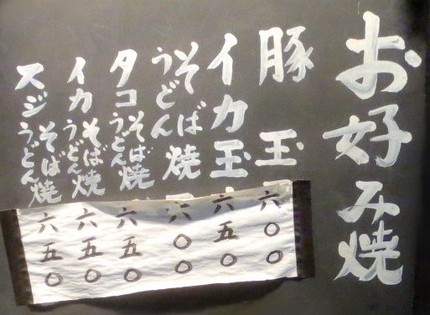 お好み焼
豚玉 六〇〇
イカ玉 六五〇
そばうどん焼 六〇〇
タコそばうどん焼 六五〇
イカそばうどん焼 六五〇
スジそばうどん焼 六五〇